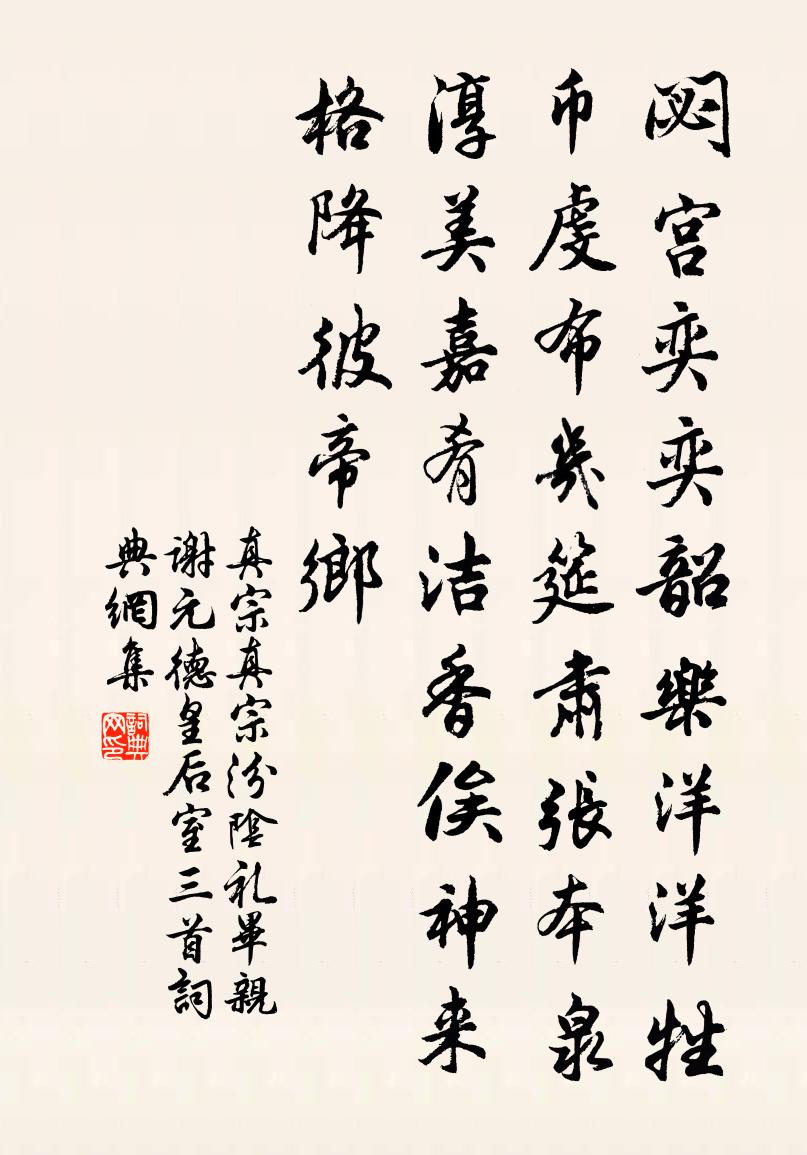 閟宮奕奕韶樂洋洋牲
币虔布幾筵肅張本泉
淳美嘉肴洁香俟神来
格降彼帝鄉
真宗真宗汾陰礼畢親
谢元德皇后室三首詞
典網集
詞典网印